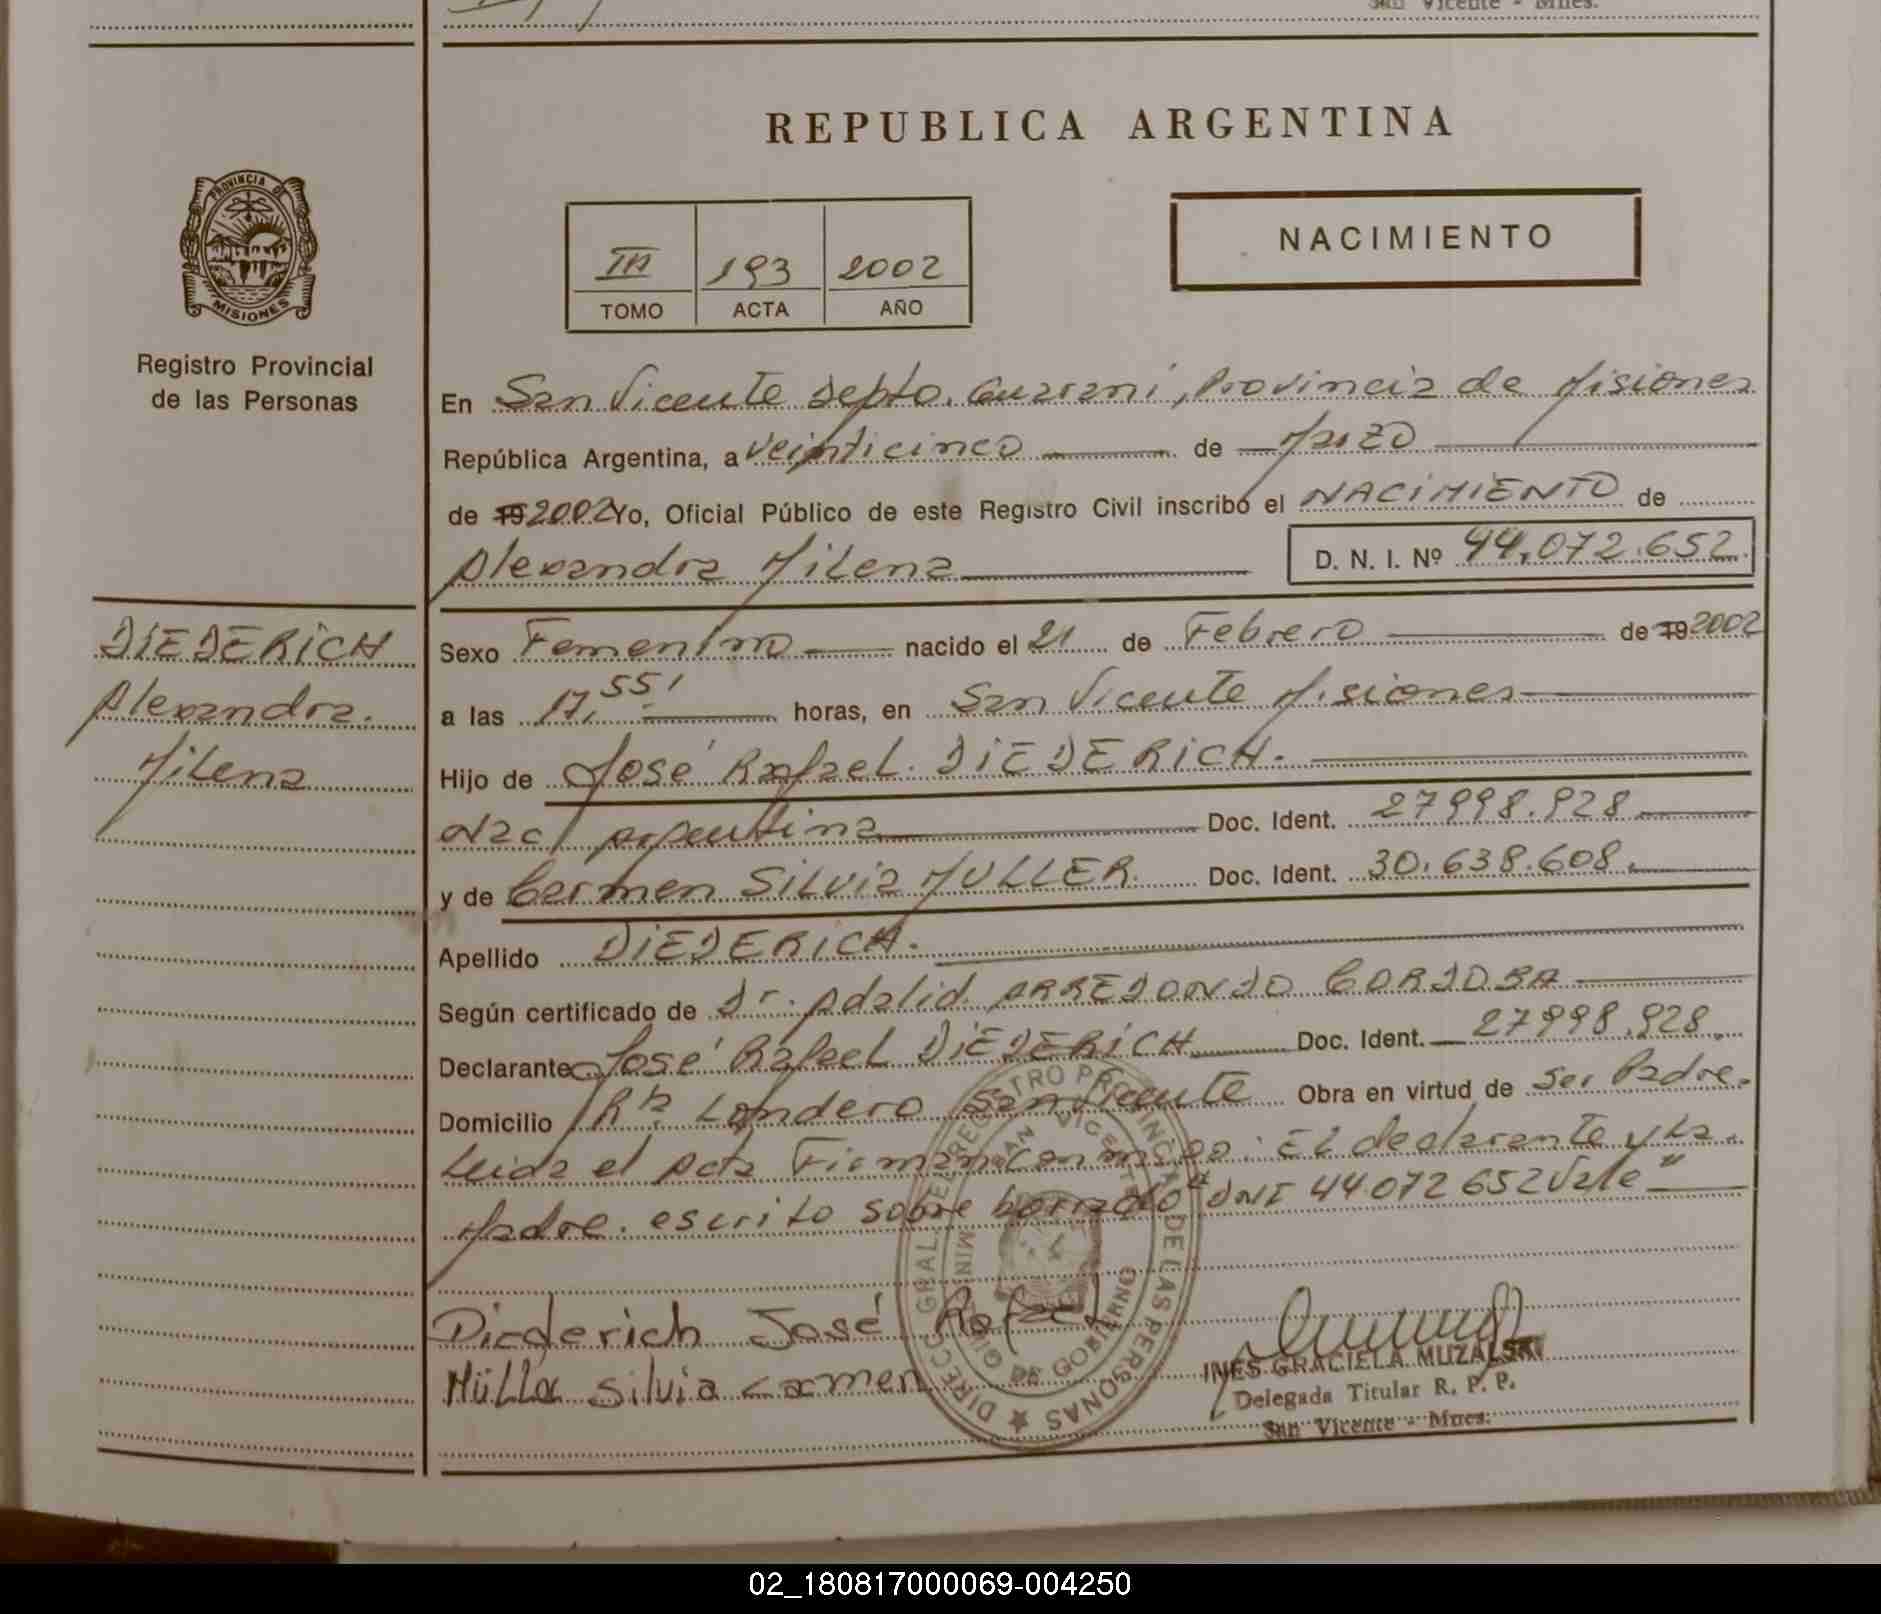 San Vicente - Mnes.
REPUBLICA ARGENTINA
PROVINCIA DE
MISIONES
Registro Provincial
de las Personas
III 193 2002
TOMO ACTA AÑO
NACIMIENTO
En San Vicente Depto. Guarani, Provincia de Misiones
República Argentina, a veinticinco de Marzo
de 19 2002 Yo, Oficial Público de este Registro Civil inscribo el NACIMIENTO de
Alexandra Milena D. N. I. Nº 44.072.652.
DIEDERICH
Alexandra.
Milena
Sexo Femenino nacido el 21 de Febrero de 19 2002
a las 17,55' horas, en San Vicente Misiones
Hijo de José Rafael. DIEDERICH.
Nac/ Argentina Doc. Ident. 27998.928
y de Carmen Silvia MULLER. Doc. Ident. 30.638.608.
Apellido DIEDERICH.
Según certificado de Dr. Adalid ARREDONDO CORDOBA
Declarante José Rafael DIEDERICH Doc. Ident. 27998.928.
Domicilio Londero San Vicente Obra en virtud de Ser Padre.
Leida el Acta Firman conmigo: El declarante y La.
Madre. escrito sobre borrado "DNI 44.072 652 Vale"
Diederich José Rafael
Müller Silvia Carmen
DIRECC. GRAL. DEL REGISTRO PROVINCIAL DE LAS PERSONAS
SAN VICENTE
MINISTERIO DE GOBIERNO
INES GRACIELA MUZALSKI
Delegada Titular R. P. P.
San Vicente - Mnes.
02_180817000069-004250